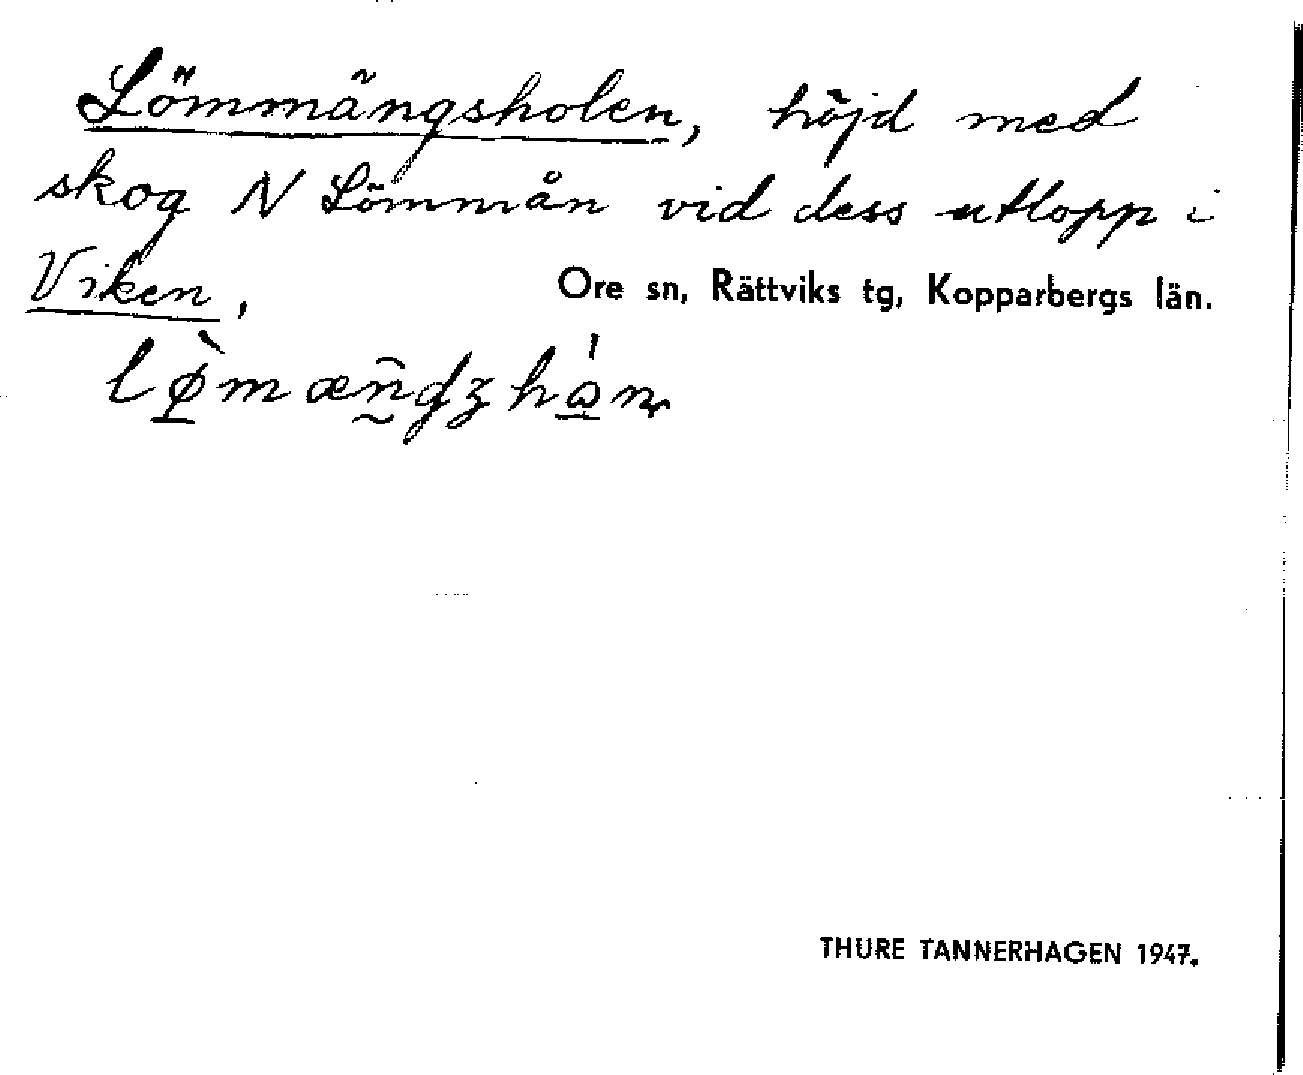 Lömmängsholen, höjd med
skog N Lömmån vid dess utlopp i
Viken,
Ore sn, Rättviks tg, Kopparbergs län.
THURE TANNERHAGEN 1947.